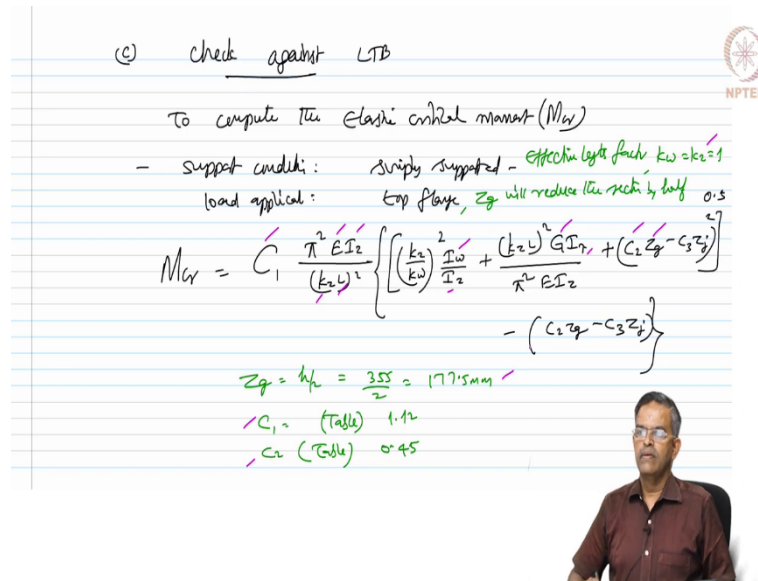 (c) check against LTB
NPTEL
To compute the Elastic critical moment (Mcr)
- support conditi: simply supported - effective length factr, kw = kz = 1
load applied: top flange, Zg will reduce the sectn by half
Mcr = C1 π² E Iz / (kz L)² { [ (kz/kw)² Iw/Iz + (kz L)² G Ir / π² E Iz + (C2 Zg - C3 Zj)² ]^0.5
- (C2 Zg - C3 Zj) }
Zg = h/2 = 355/2 = 177.5mm
C1 = (Table) 1.12
C2 (Table) 0.45